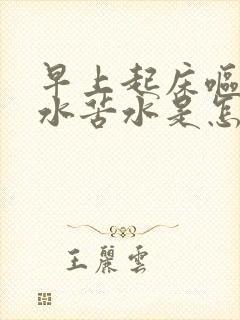 早上起床嘔
水苦水是怎
王麗雲